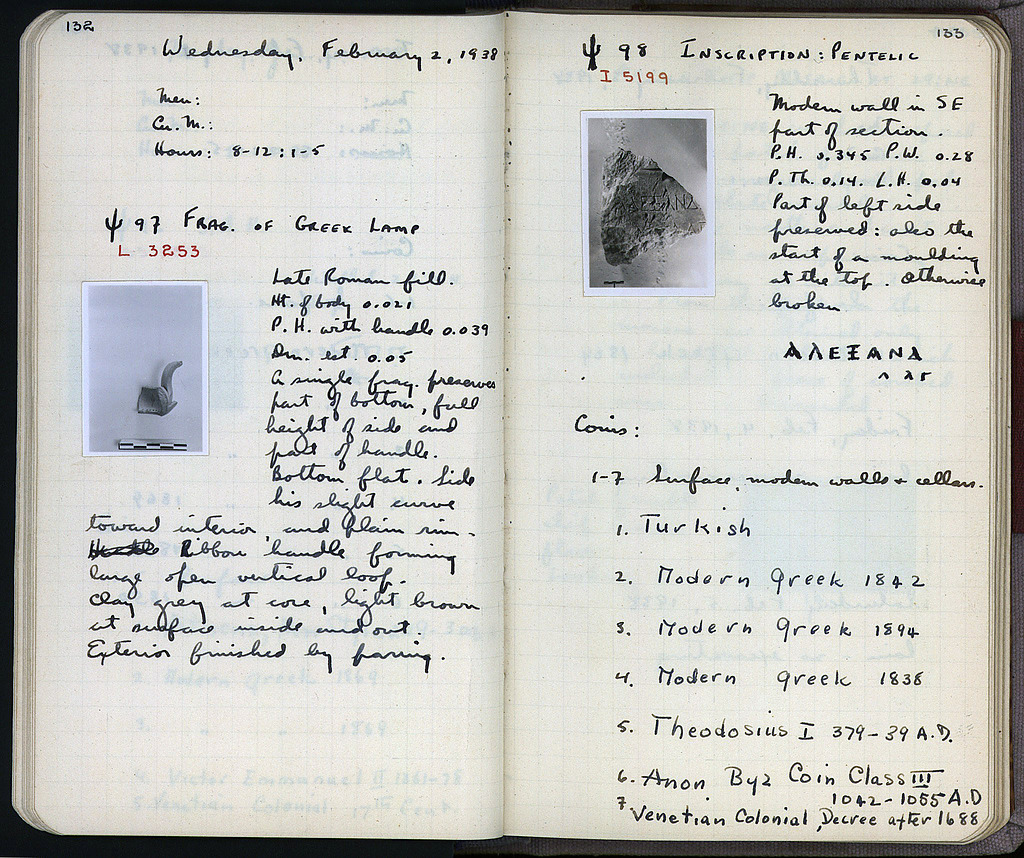 132
Wednesday, February 2, 1938
Men:
Cu. M.:
Hours: 8-12 : 1-5
ψ 97 FRAG. OF GREEK LAMP
L 3253
Late Roman fill.
Ht. of body 0.021
P.H. with handle 0.039
Dm. est 0.05
A single frag. preserves
part of bottom, full
height of side and
part of handle.
Bottom flat. Side
has slight curve
toward interior, and plain rim.
Ribbon handle forming
large open vertical loop.
Clay grey at core, light brown
at surface inside and out.
Exterior finished by paring.
133
ψ 98 INSCRIPTION: PENTELIC
I 5199
Modern wall in SE
part of section.
P.H. 0.345 P.W. 0.28
P.Th. 0.14. L.H. 0.04
Part of left side
preserved: also the
start of a moulding
at the top. Otherwise
broken
ΑΛΕΞΑΝΔ
Coins:
1-7 Surface, modern walls + cellars.
1. Turkish
2. Modern Greek 1842
3. Modern Greek 1894
4. Modern Greek 1838
5. Theodosius I 379-39 A.D.
6. Anon. Byz Coin Class III
1042-1055 A.D
7. Venetian Colonial, Decree after 1688